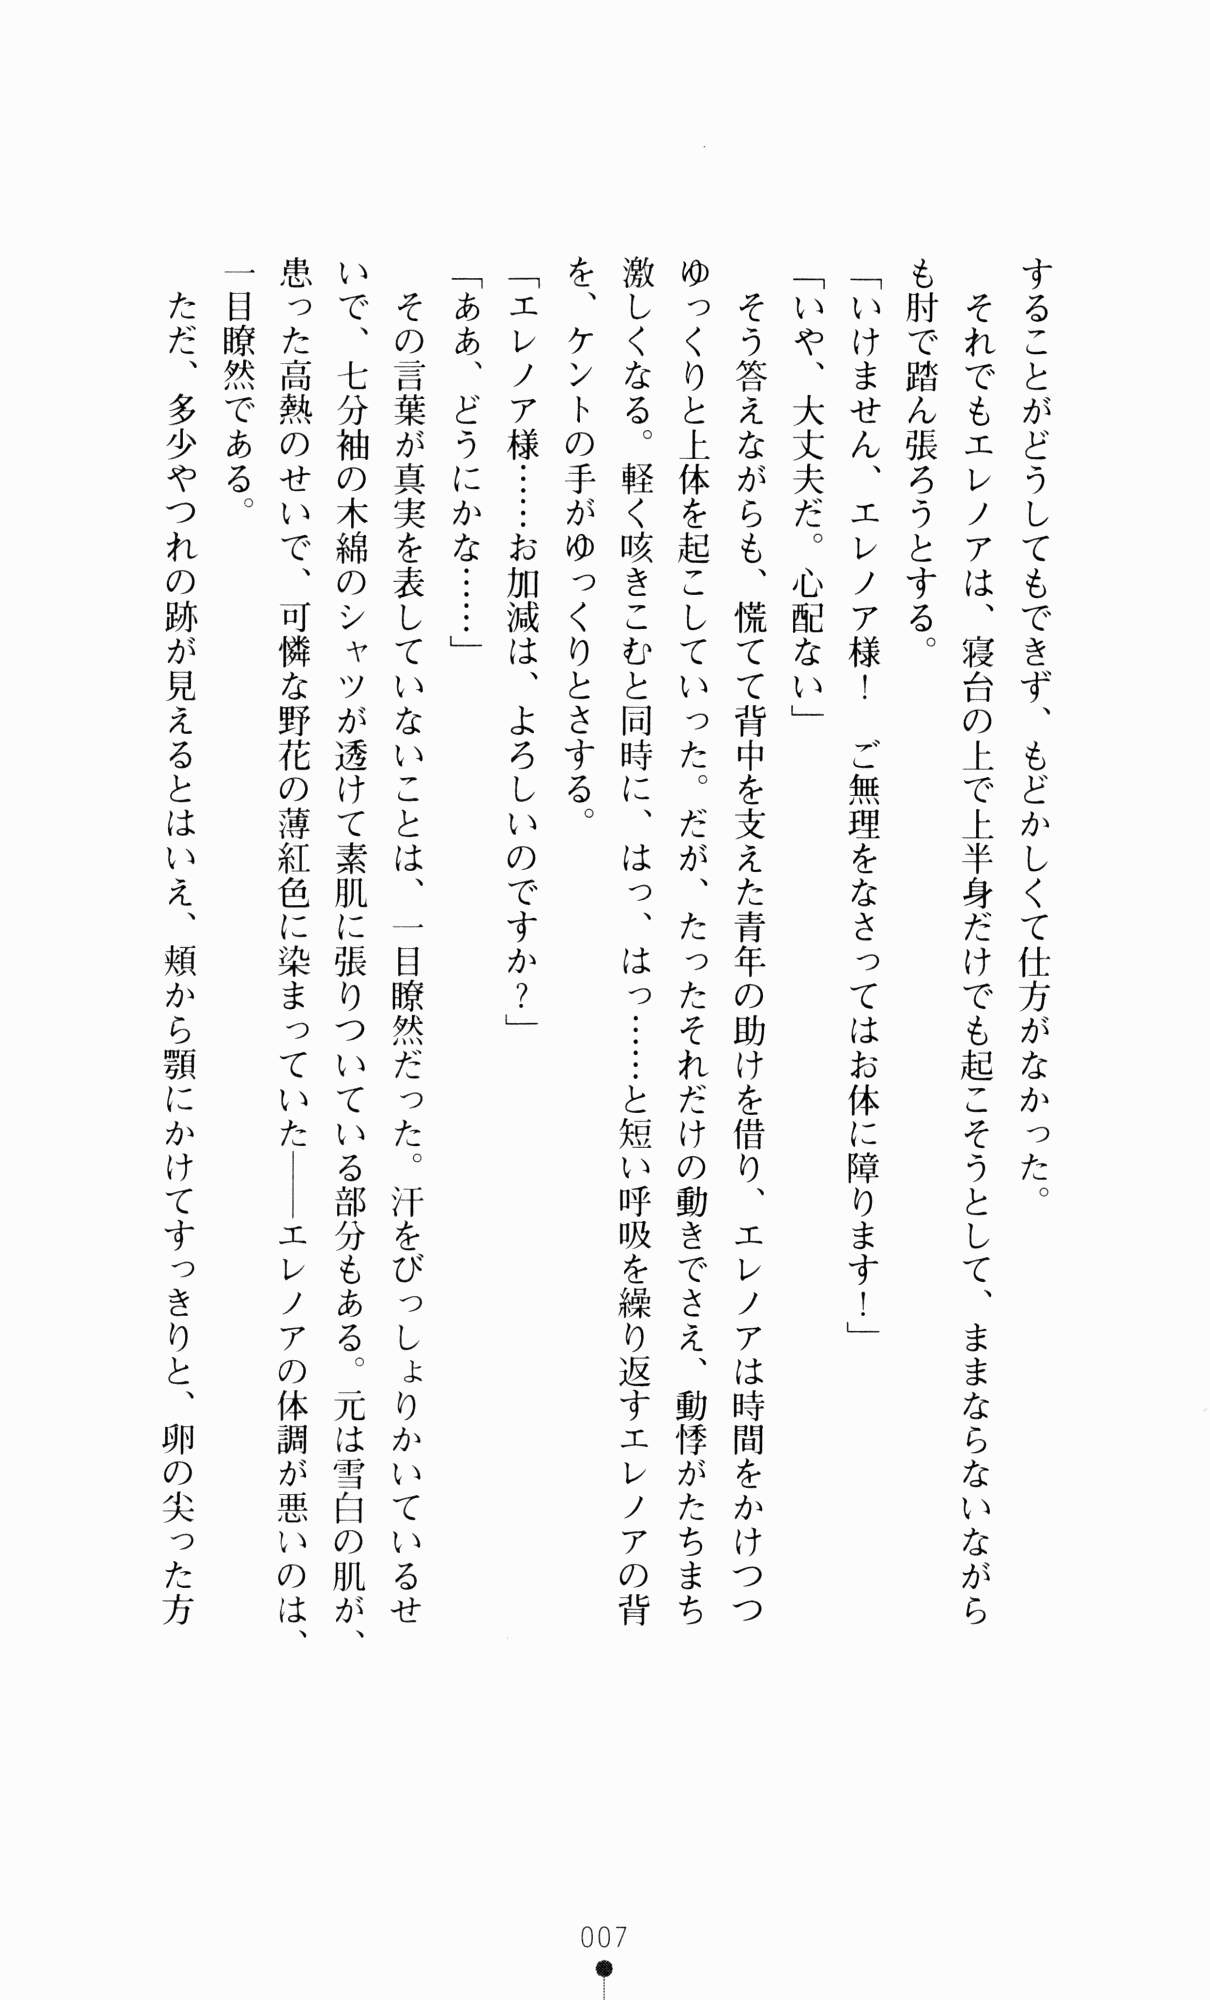 することがどうしてもできず、もどかしくて仕方がなかった。
　それでもエレノアは、寝台の上で上半身だけでも起こそうとして、ままならないながら
も肘で踏ん張ろうとする。
「いけません、エレノア様！　ご無理をなさってはお体に障ります！」
「いや、大丈夫だ。心配ない」
　そう答えながらも、慌てて背中を支えた青年の助けを借り、エレノアは時間をかけつつ
ゆっくりと上体を起こしていった。だが、たったそれだけの動きでさえ、動悸がたちまち
激しくなる。軽く咳きこむと同時に、はっ、はっ……と短い呼吸を繰り返すエレノアの背
を、ケントの手がゆっくりとさする。
「エレノア様……お加減は、よろしいのですか？」
「ああ、どうにかな……」
　その言葉が真実を表していないことは、一目瞭然だった。汗をびっしょりかいているせ
いで、七分袖の木綿のシャツが透けて素肌に張りついている部分もある。元は雪白の肌が、
患った高熱のせいで、可憐な野花の薄紅色に染まっていた――エレノアの体調が悪いのは、
一目瞭然である。
　ただ、多少やつれの跡が見えるとはいえ、頬から顎にかけてすっきりと、卵の尖った方
007